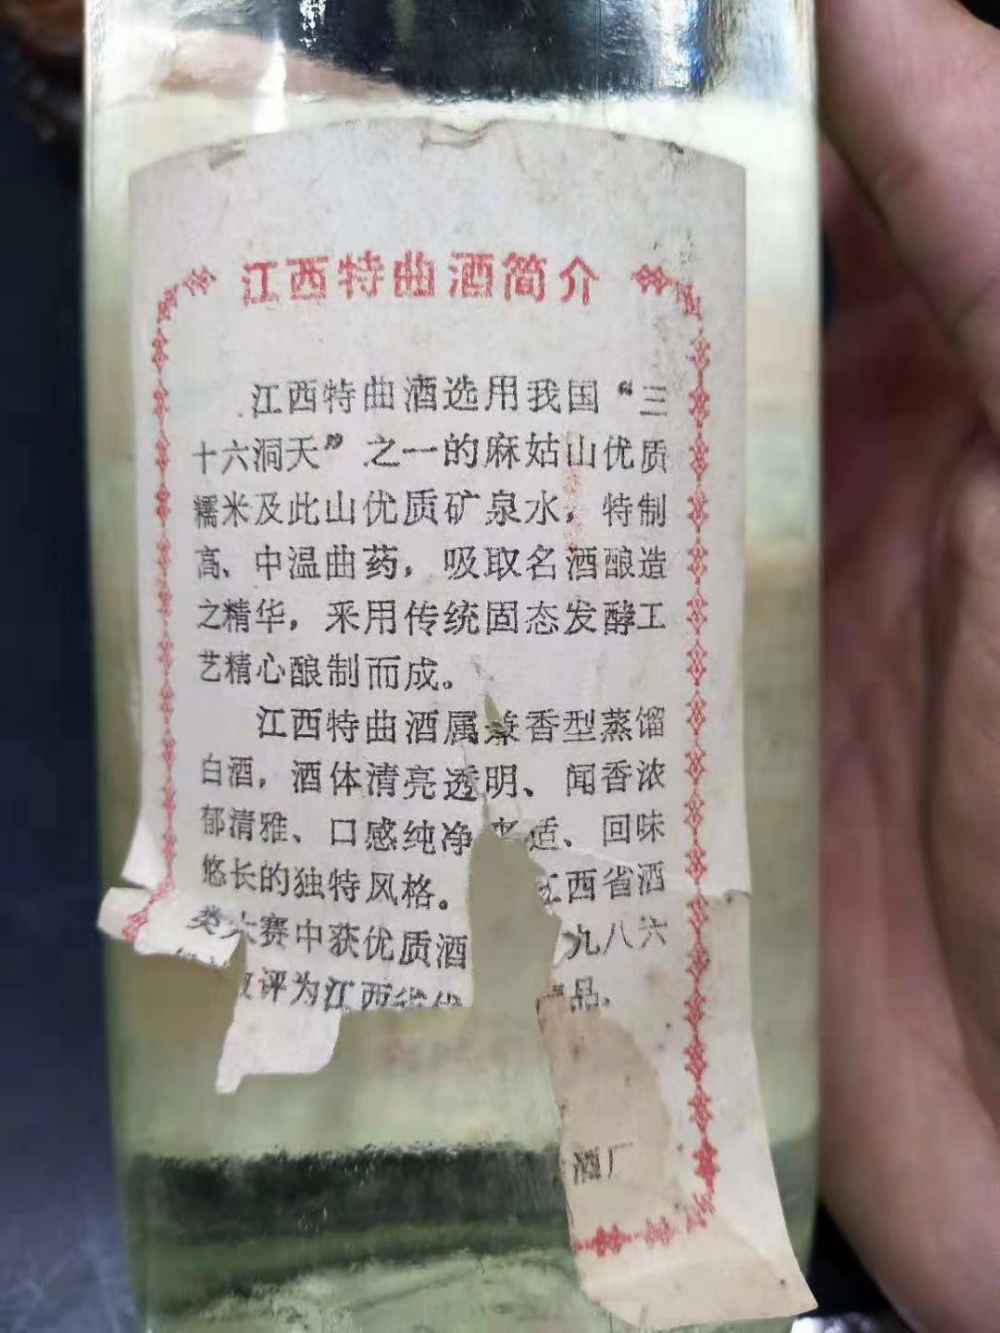 江西特曲酒简介
江西特曲酒选用我国“三
十六洞天”之一的麻姑山优质
糯米及此山优质矿泉水，特制
高、中温曲药，吸取名酒酿造
之精华，采用传统固态发酵工
艺精心酿制而成。
江西特曲酒属兼香型蒸馏
白酒，酒体清亮透明、闻香浓
郁清雅、口感纯净 适、回味
悠长的独特风格。 江西省酒
类大赛中获优质酒 九八六
评为江西省优 品.
酒厂